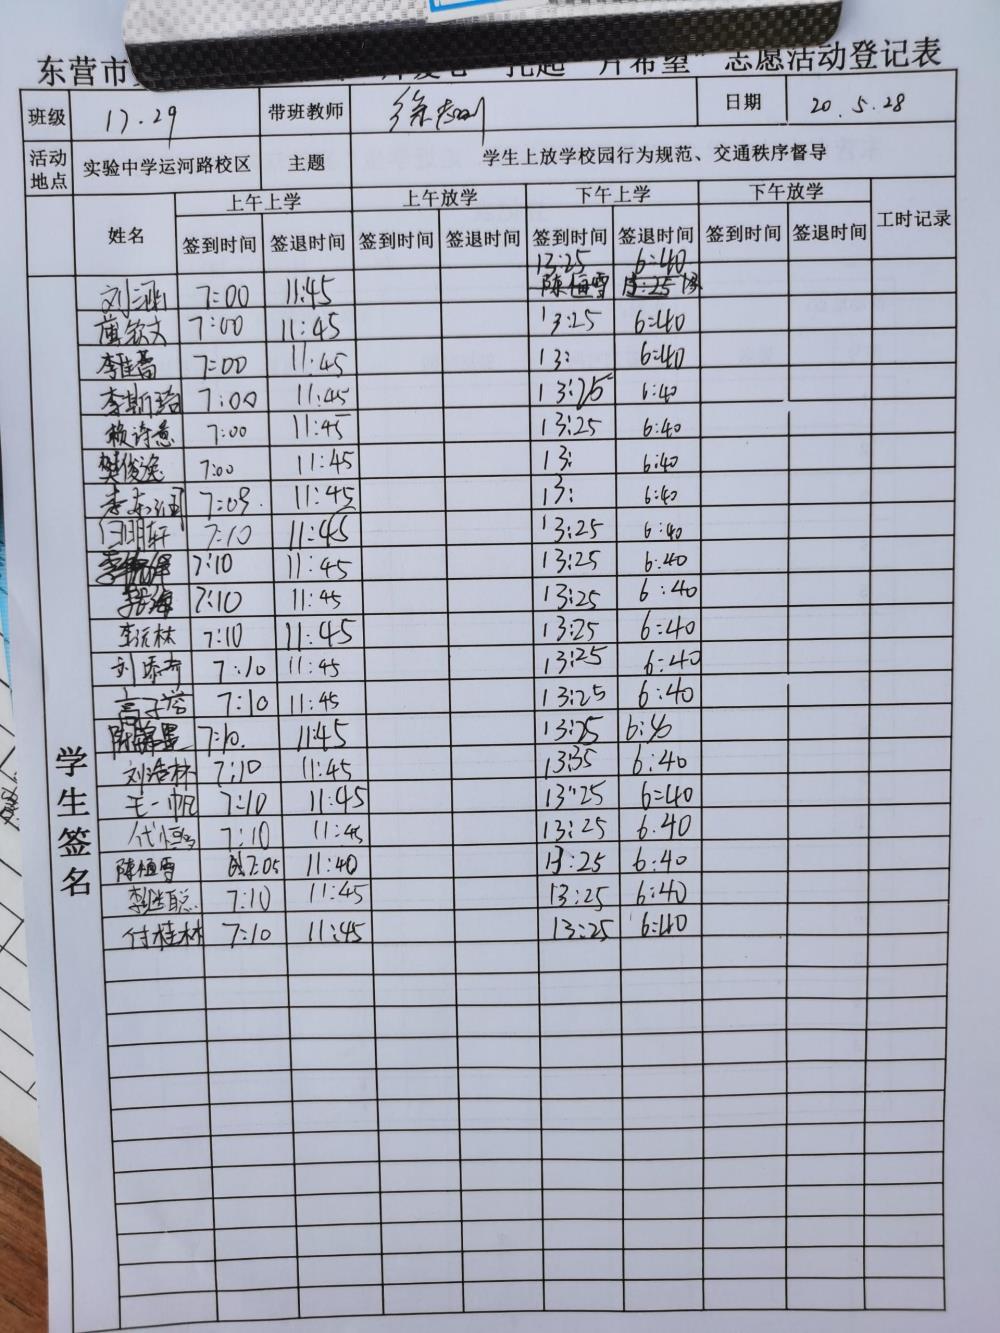 东营市 志愿活动登记表
班级 17.29 带班教师 日期 20.5.28
活动地点 实验中学运河路校区 主题 学生上放学校园行为规范、交通秩序督导
上午上学 上午放学 下午上学 下午放学 工时记录
姓名 签到时间 签退时间 签到时间 签退时间 签到时间 签退时间 签到时间 签退时间
13:25 6:40
刘涵 7:00 11:45 陈恒雪
7:00 11:45 13:25 6:40
李佳蕾 7:00 11:45 13: 6:40
李斯珺 7:00 11:45 13:25 6:40
赖诗意 7:00 11:45 13:25 6:40
樊俊逸 7:00 11:45 13: 6:40
李东润 7:09. 11:45 13: 6:40
闫明轩 7:10 11:45 13:25 6:40
7:10 11:45 13:25 6:40
7:10 11:45 13:25 6:40
李沅林 7:10 11:45 13:25 6:40
刘添奇 7:10 11:45 13:25 6:40
高子涵 7:10 11:45 13:25 6:40
7:10. 11:45 13:25
刘浩林 7:10 11:45 13:35 6:40
王一帆 7:10 11:45 13:25 6:40
7:10 11:45 13:25 6.40
陈恒雪 7:05 11:40 13:25 6:40
李胜聪 7:10 11:45 13:25 6:40
付桂林 7:10 11:45 13:25 6:40
学生签名